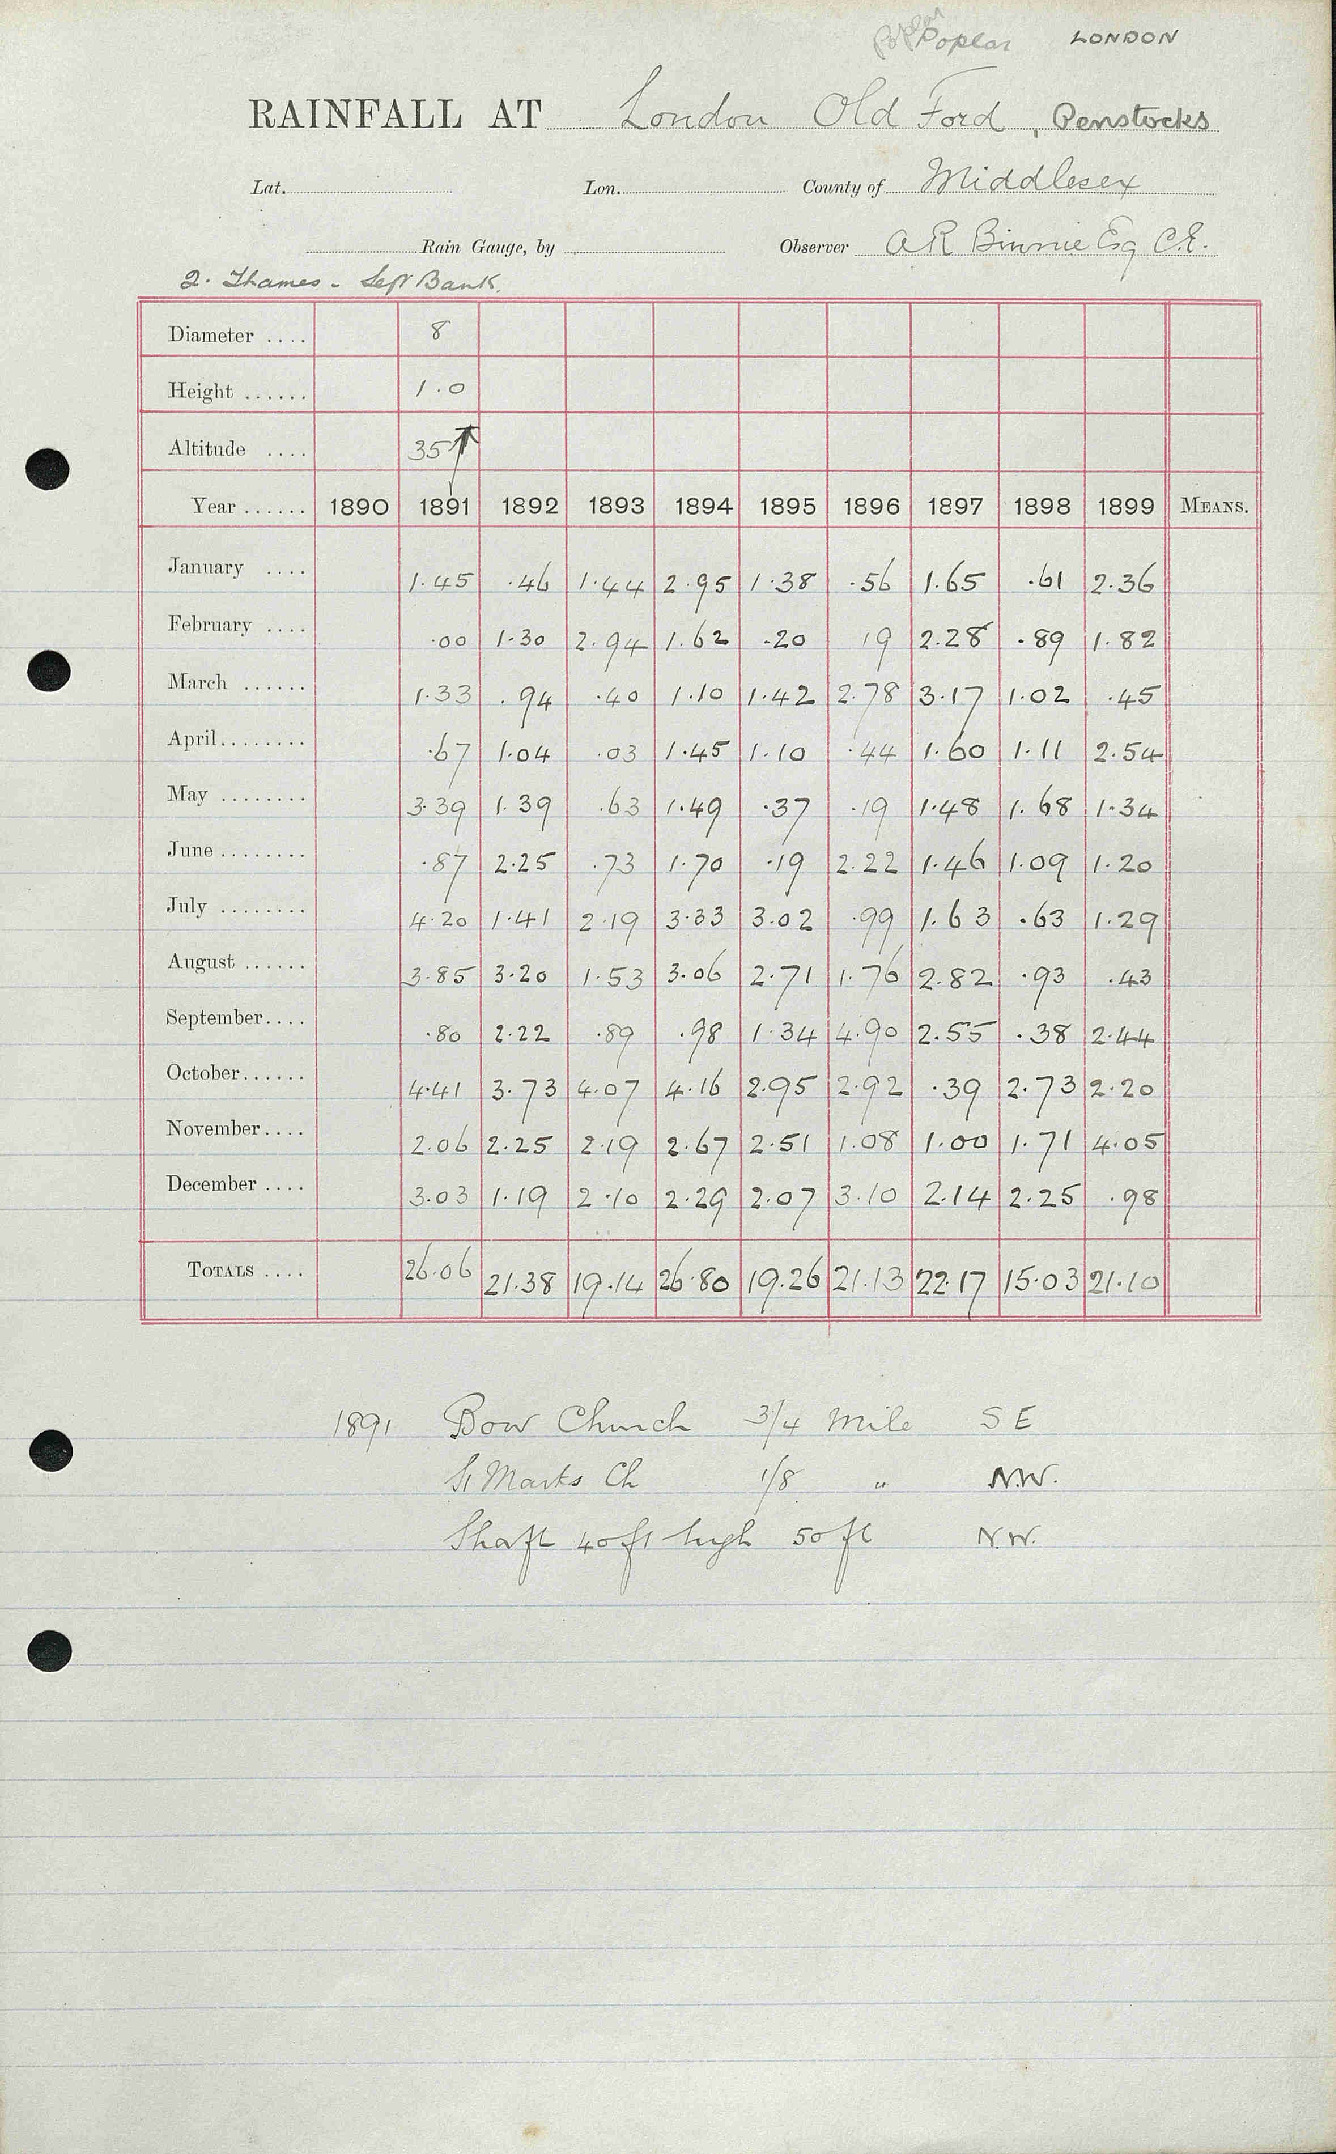 Poplar Poplar LONDON
RAINFALL AT London Old Ford, Penstocks
Lat. Lon. County of Middlesex
Rain Gauge, by Observer A R Binnie Esq C.E.
2. Thames - Left Bank.
Diameter .... 8
Height ...... 1.0
Altitude .... 35
Year ...... 1890 1891 1892 1893 1894 1895 1896 1897 1898 1899 MEANS.
January .... 1.45 .46 1.44 2.95 1.38 .56 1.65 .61 2.36
February .... .00 1.30 2.94 1.62 .20 19 2.28 .89 1.82
March ...... 1.33 .94 .40 1.10 1.42 2.78 3.17 1.02 .45
April........ .67 1.04 .03 1.45 1.10 .44 1.60 1.11 2.54
May ........ 3.39 1.39 .63 1.49 .37 .19 1.48 1.68 1.34
June ........ .87 2.25 .73 1.70 .19 2.22 1.46 1.09 1.20
July ........ 4.20 1.41 2.19 3.33 3.02 .99 1.63 .63 1.29
August ...... 3.85 3.20 1.53 3.06 2.71 1.76 2.82 .93 .43
September.... .80 2.22 .89 .98 1.34 4.90 2.55 .38 2.44
October...... 4.41 3.73 4.07 4.16 2.95 2.92 .39 2.73 2.20
November.... 2.06 2.25 2.19 2.67 2.51 1.08 1.00 1.71 4.05
December .... 3.03 1.19 2.10 2.29 2.07 3.10 2.14 2.25 .98
TOTALS .... 26.06 21.38 19.14 26.80 19.26 21.13 22.17 15.03 21.10
1891 Bow Church 3/4 Mile S E
St Marks Ch 1/8 " N.W.
Shaft 40ft high 50ft N.W.